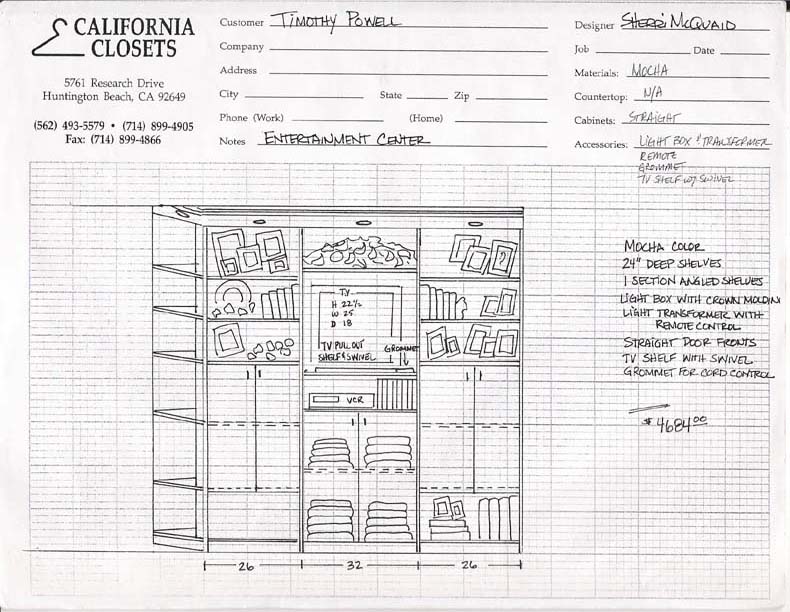 CALIFORNIA
CLOSETS
5761 Research Drive
Huntington Beach, CA 92649
(562) 493-5579 • (714) 899-4905
Fax: (714) 899-4866
Customer TIMOTHY POWELL
Company
Address
City State Zip
Phone (Work) (Home)
Notes ENTERTAINMENT CENTER
Designer SHERRI MCQUAID
Job Date
Materials: MOCHA
Countertop: N/A
Cabinets: STRAIGHT
Accessories: LIGHT BOX & TRANSFORMER
REMOTE
GROMMET
TV SHELF W/ SWIVEL
MOCHA COLOR
24" DEEP SHELVES
1 SECTION ANGLED SHELVES
LIGHT BOX WITH CROWN MOLDIN
LIGHT TRANSFORMER WITH
REMOTE CONTROL
STRAIGHT DOOR FRONTS
TV SHELF WITH SWIVEL
GROMMET FOR CORD CONTROL
$4684.00
TV
H 22 1/2
W 25
D 18
TV PULL OUT
SHELF & SWIVEL
GROMMET
VCR
26 32 26